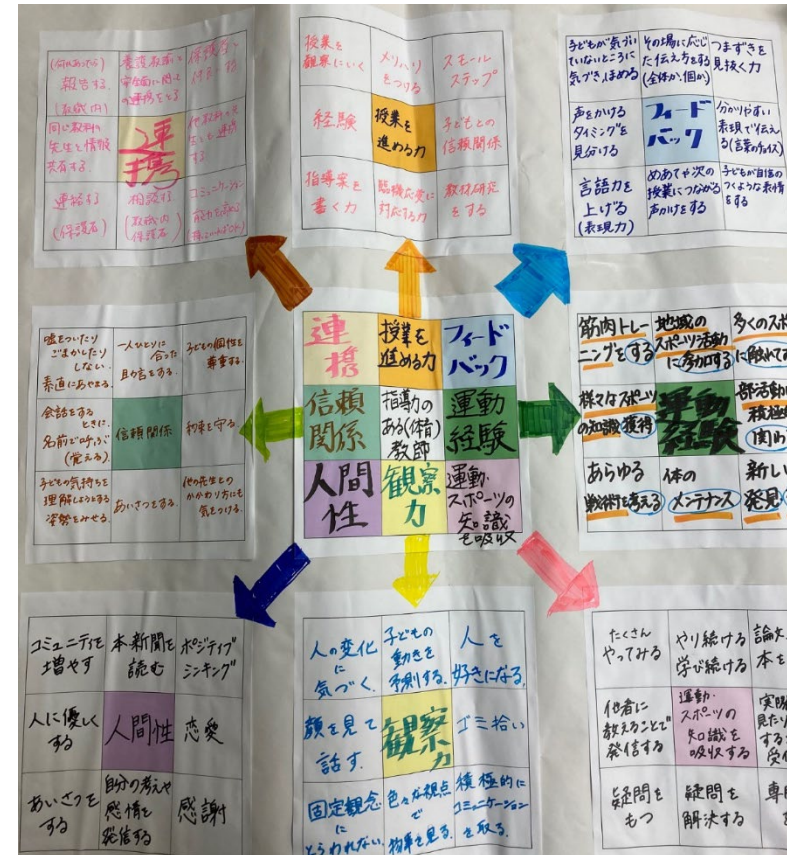 (何かあったら)
報告する.
(教職内)
養護教諭と
安全面に関して
の連携をとる
保護者と
同じ教科の
先生と情報
共有する.
連携
他教科の先
生とも連携
する
連絡する
(保護者)
相談する
(教職内
保護者)
コミュニケーション
能力を高める
授業を
観察にいく
メリハリ
をつける
スモール
ステップ
経験
授業を
進める力
子どもとの
信頼関係
指導案を
書く力
臨機応変に
対応する力
教材研究
をする
子どもが気づい
ていないところに
気づき、ほめる
その場に応じ
た伝え方をする
(全体か、個か)
つまずきを
見抜く力
声をかける
タイミングを
見分ける
フィード
バック
分かりやすい
表現で伝え
る(言葉のチョイス)
言語力を
上げる
(表現力)
めあてや次の
授業につながる
声かけをする
子どもが自信の
つくような表情
をする
嘘をついたり
ごまかしたり
しない.
素直にあやまる.
一人ひとりに
合った
助言をする.
子どもの個性を
尊重する.
会話をする
ときに.
名前で呼ぶ
(覚える).
信頼関係
約束を守る.
子どもの気持ちを
理解しようとする
姿勢をみせる.
あいさつをする.
他の先生との
かかわり方にも
気をつける.
連携
授業を
進める力
フィード
バック
信頼
関係
指導力の
ある(体育)
教師
運動
経験
人間
性
観察
力
運動・
スポーツの
知識
を吸収
筋肉トレー
ニングをする
地域の
スポーツ活動
に参加する
多くのスポ
に触れて
様々なスポーツ
の知識獲得
運動
経験
部活動に
積極
関わ
あらゆる
戦術を考える
体の
メンテナンス
新しい
発見
コミュニティを
増やす
本・新聞を
読む
ポジティブ
シンキング
人に優しく
する
人間性
恋愛
あいさつを
する
自分の考えや
感情を
発信する
感謝
人の変化
に
気づく.
子どもの
動きを
予測する.
人を
好きになる.
顔を見て
話す.
観察
力
ゴミ拾い
固定観念
に
とらわれない.
色々な視点
で
物事を見る.
積極的に
コミュニケーション
を取る.
たくさん
やってみる
やり続ける
学び続ける
論文
本を
他者に
教えることで
発信する
運動・
スポーツの
知識を
吸収する
見たり
する
疑問を
もつ
疑問を
解決する
専